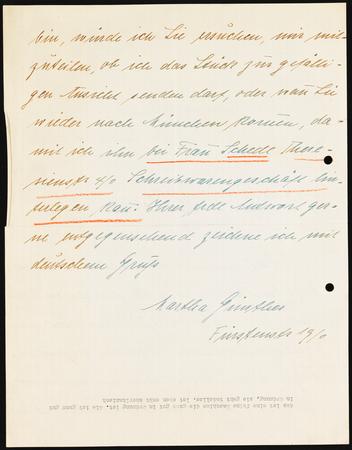 bin, würde ich Sie ersuchen, mir mit-
zuteilen, ob ich das Stück zur gefälli-
gen Ansicht senden darf, oder wann Sie
wieder nach München kommen, da-
mit ich ihn bei Frau Schedl There-
sienstr Schreibwarengeschäft hin-
terlegen kann. Ihrer Antwort ger-
ne entgegensehend zeichne ich mit
deutschem Gruß
Martha Günther
Fürstenstr 19/0
das ist eine feine Maschine die ganz gut in Ordnung ist, die ist ganz gut
in Ordnung, sie geht tadellos, ist eben echt amerikanisch